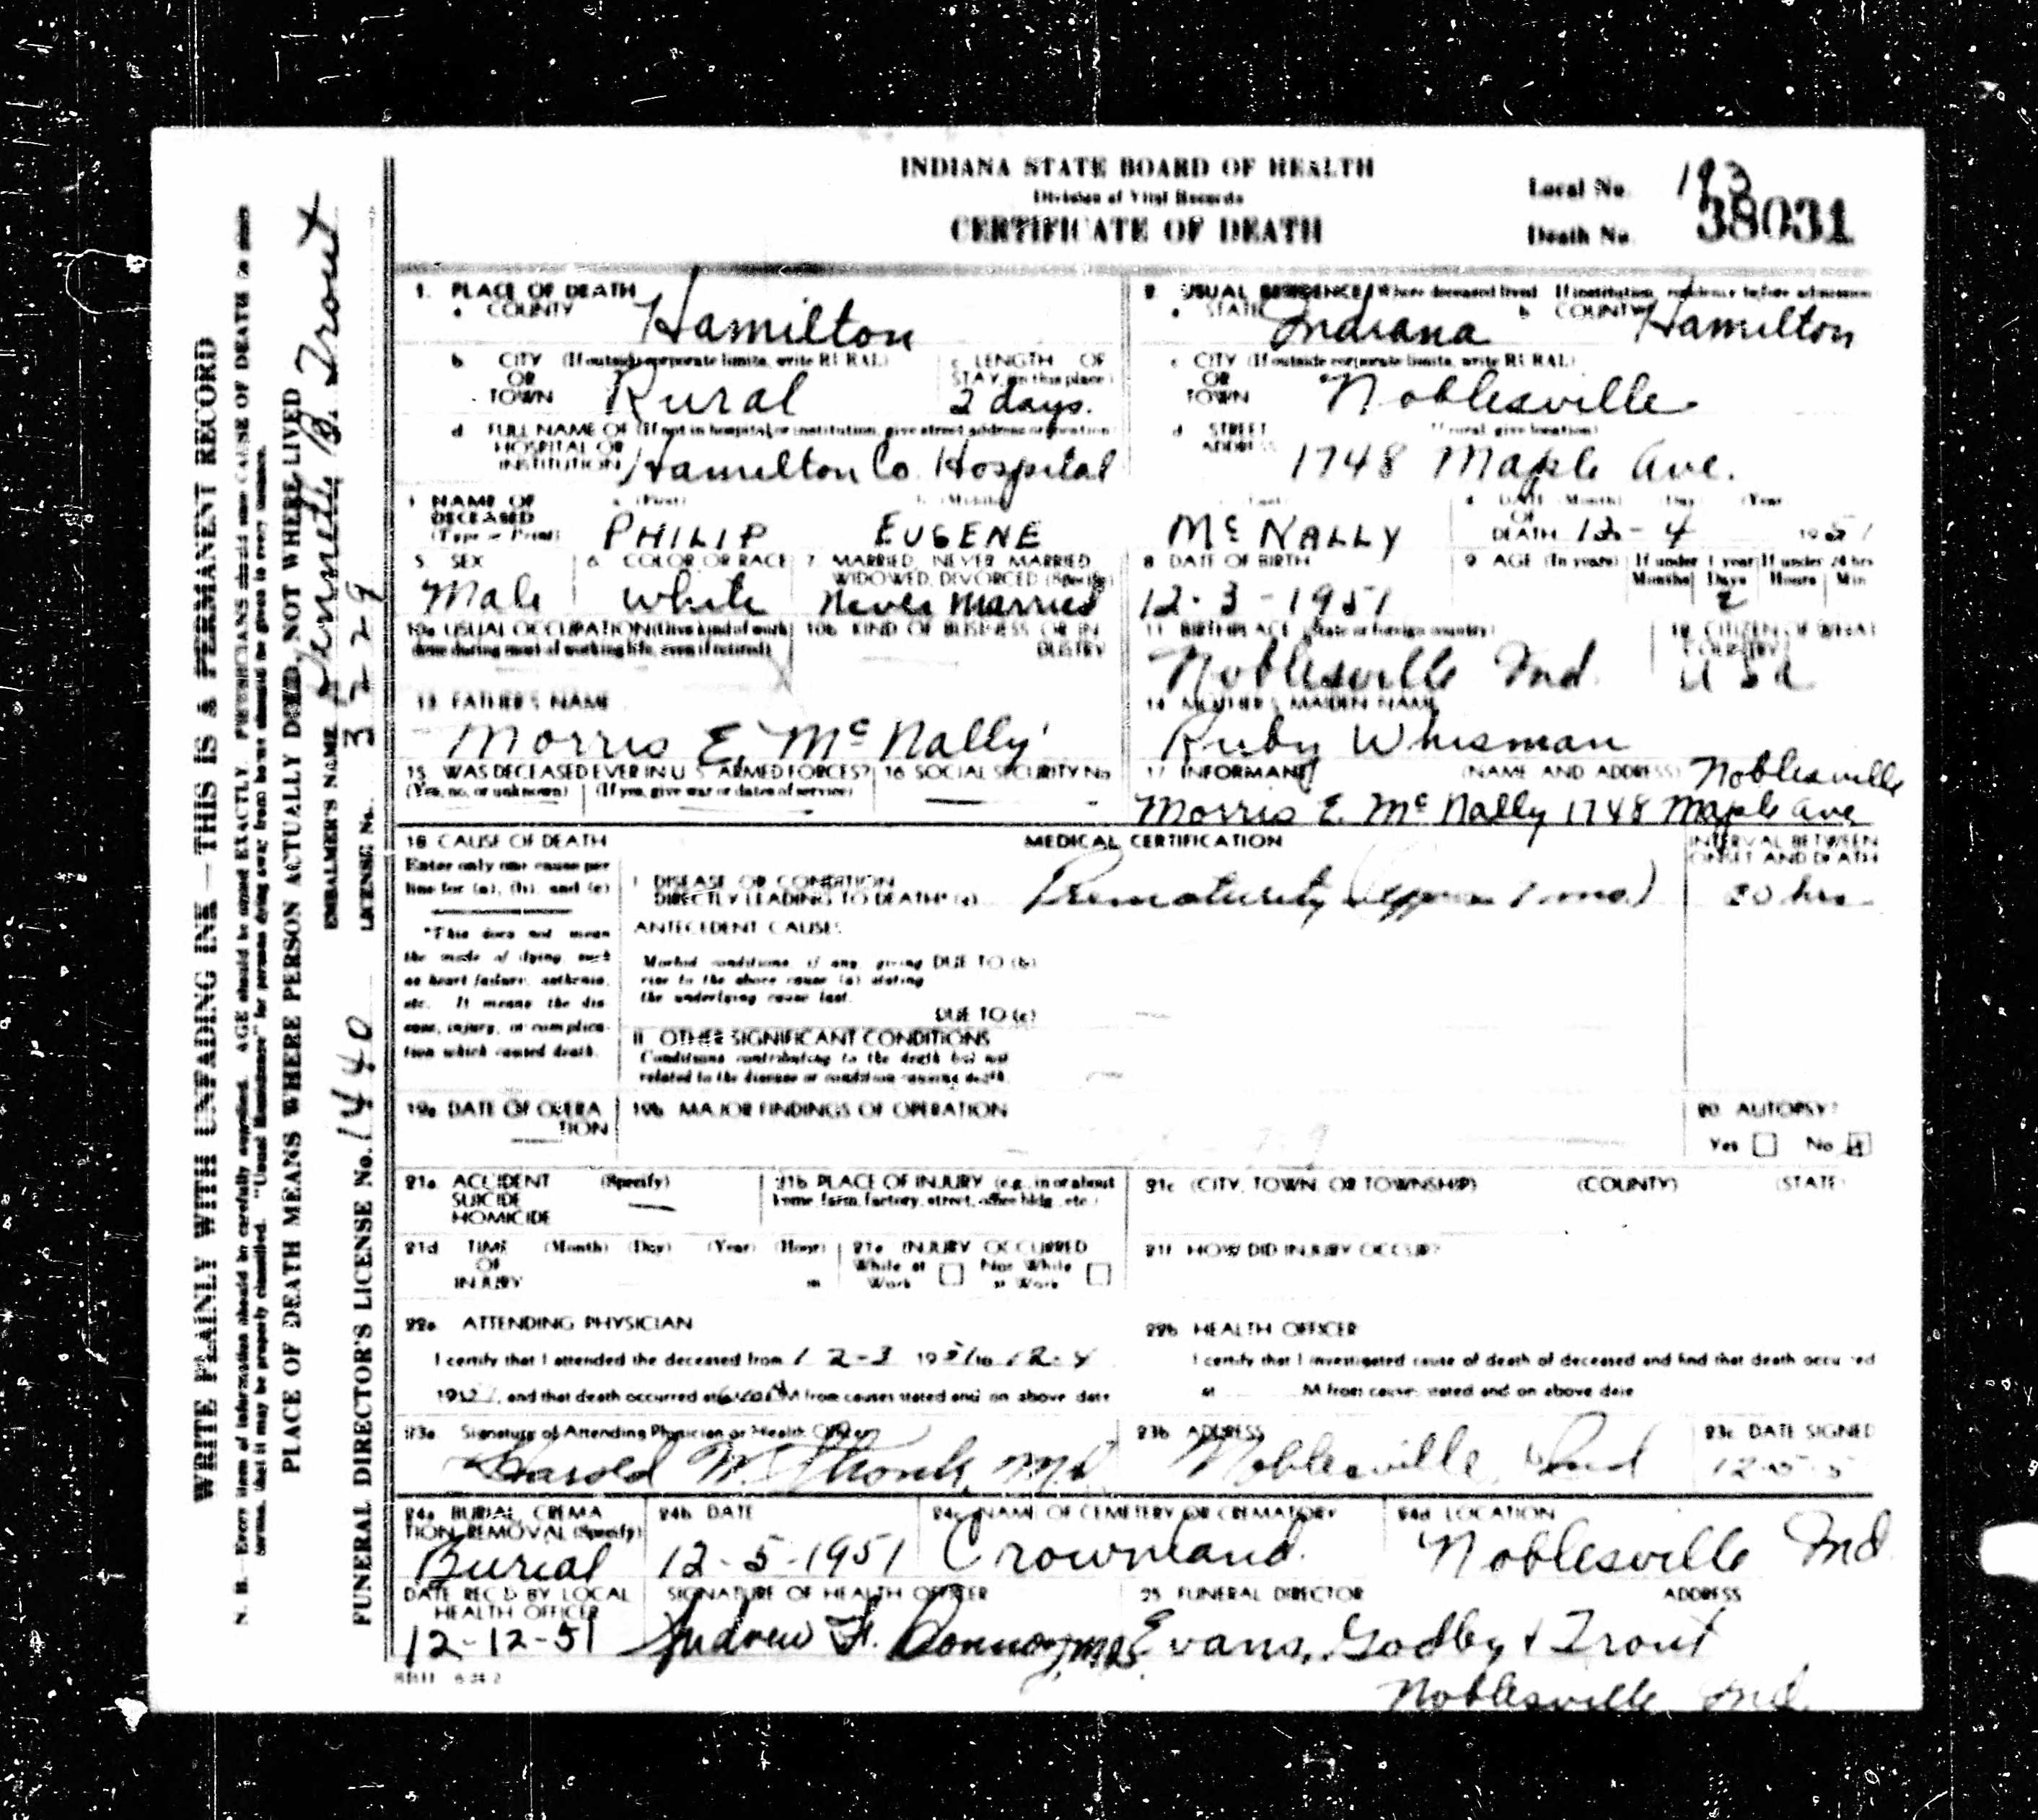 INDIANA STATE BOARD OF HEALTH
Division of Vital Records
CERTIFICATE OF DEATH
Local No. 193
Death No. 38031
1. PLACE OF DEATH
a COUNTY Hamilton
b CITY (If outside corporate limits, write RURAL) OR TOWN Rural
c LENGTH OF STAY (in this place) 2 days.
d FULL NAME OF (If not in hospital or institution, give street address or location) HOSPITAL OR INSTITUTION Hamilton Co. Hospital
2 USUAL RESIDENCE (Where deceased lived If institution, residence before admission
a STATE Indiana b COUNTY Hamilton
c CITY (If outside corporate limits, write RURAL) OR TOWN Noblesville
d STREET ADDRESS (If rural give location) 1748 Maple Ave.
3 NAME OF DECEASED (Type or Print) a (First) PHILIP b (Middle) EUGENE (Last) McNALLY
4 DATE OF DEATH (Month) (Day) (Year) 12-4 1951
5 SEX Male
6 COLOR OR RACE White
7 MARRIED, NEVER MARRIED WIDOWED, DIVORCED (Specify) Never Married
8 DATE OF BIRTH 12-3-1951
9 AGE (In years) If under 1 year Months Days 2 If under 24 hrs Hours Min
10a USUAL OCCUPATION (Give kind of work done during most of working life, even if retired)
10b KIND OF BUSINESS OR INDUSTRY
11 BIRTHPLACE (State or foreign country) Noblesville Ind.
12 CITIZEN OF WHAT COUNTRY? USA
13 FATHER'S NAME
Morris E. McNally
14 MOTHER'S MAIDEN NAME
Ruby Whisman
15 WAS DECEASED EVER IN U. S. ARMED FORCES?
(Yes, no, or unknown) (If yes, give war or dates of service)
16 SOCIAL SECURITY No
17 INFORMANT (NAME AND ADDRESS) Noblesville
Morris E. McNally 1748 Maple Ave
18 CAUSE OF DEATH
Enter only one cause per line for (a), (b), and (c)
*This does not mean the mode of dying, such as heart failure, asthenia, etc. It means the disease, injury, or complication which caused death.
MEDICAL CERTIFICATION
INTERVAL BETWEEN ONSET AND DEATH
I DISEASE OR CONDITION DIRECTLY LEADING TO DEATH* (a) Prematurity 1 mo) 30 hrs
ANTECEDENT CAUSES
Morbid conditions, if any, giving rise to the above cause (a) stating the underlying cause last.
DUE TO (b)
DUE TO (c)
II OTHER SIGNIFICANT CONDITIONS
Conditions contributing to the death but not related to the disease or condition causing death.
19a DATE OF OPERATION
19b MAJOR FINDINGS OF OPERATION
20 AUTOPSY?
Yes No
21a ACCIDENT SUICIDE HOMICIDE (Specify)
21b PLACE OF INJURY (e.g., in or about home, farm, factory, street, office bldg., etc.)
21c (CITY, TOWN, OR TOWNSHIP) (COUNTY) (STATE)
21d TIME OF INJURY (Month) (Day) (Year) (Hour) m
21e INJURY OCCURRED While at Work Not While at Work
21f HOW DID INJURY OCCUR?
22a ATTENDING PHYSICIAN
I certify that I attended the deceased from 12-3 1951 to 12-4
1951, and that death occurred at M from causes stated and on above date
22b HEALTH OFFICER
I certify that I investigated cause of death of deceased and find that death occurred
at M from causes stated and on above date
23a Signature of Attending Physician or Health Officer
Harold M. MD
23b ADDRESS Noblesville Ind
23c DATE SIGNED
24a BURIAL, CREMATION, REMOVAL (Specify) Burial
24b DATE 12-5-1951
24c NAME OF CEMETERY OR CREMATORY Crownland.
24d LOCATION Noblesville Ind.
DATE REC'D BY LOCAL HEALTH OFFICER 12-12-51
SIGNATURE OF HEALTH OFFICER Andrew H.
25 FUNERAL DIRECTOR ADDRESS
Evans, Godby & Trout
Noblesville Ind.
WRITE PLAINLY WITH UNFADING INK—THIS IS A PERMANENT RECORD
N. B.—Every item of information should be carefully supplied. AGE should be stated EXACTLY. PHYSICIANS should state CAUSE OF DEATH in plain
terms, that it may be properly classified. "Usual Residence" for persons dying away from home should be given in every instance.
PLACE OF DEATH MEANS WHERE PERSON ACTUALLY DIED, NOT WHERE LIVED
EMBALMER'S NAME Kenneth B. Trout
FUNERAL DIRECTOR'S LICENSE No. 1440 LICENSE No. 3229